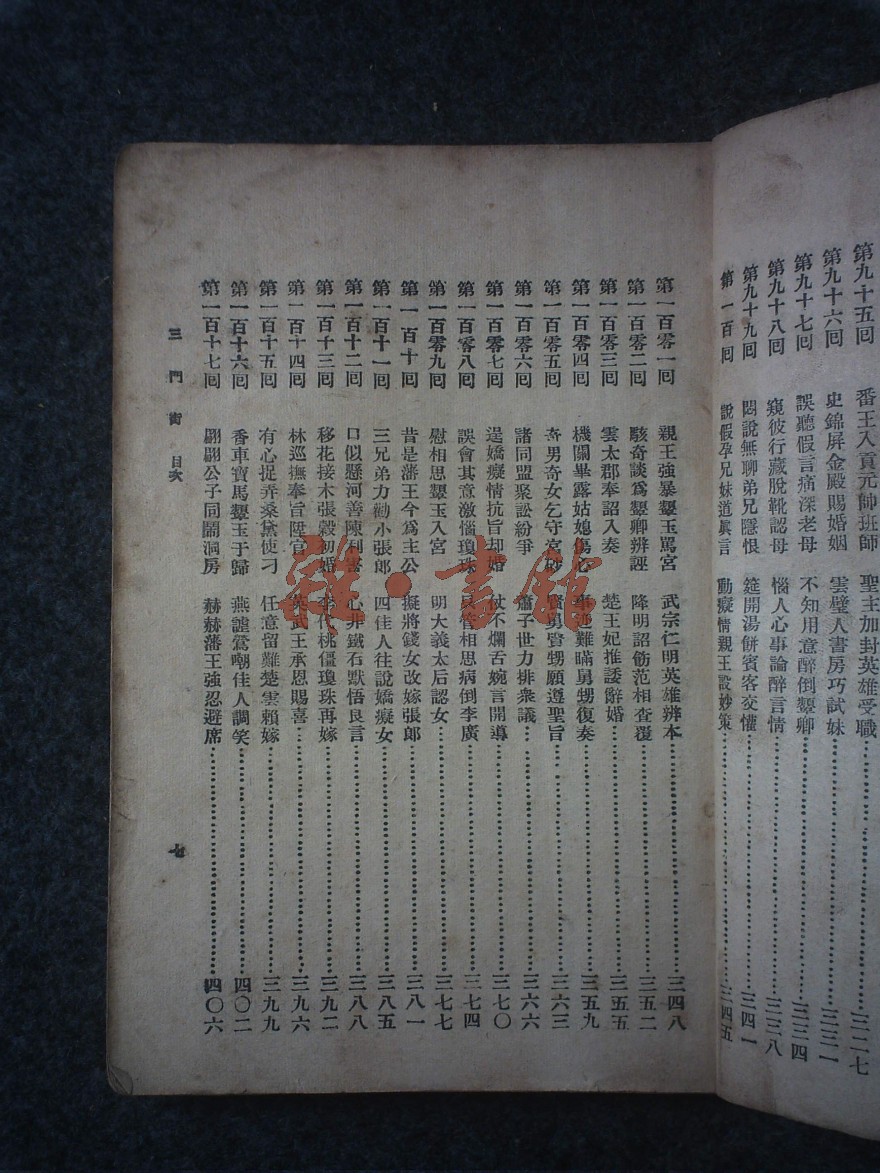 第九十五回 番王入貢元帥班師 聖主加封英雄受職 三二七
第九十六回 史錦屏金殿賜婚姻 雲璧人書房巧試妹 三三一
第九十七回 誤聽假言痛深老母 不知用意醉倒顰卿 三三四
第九十八回 窺彼行藏脫靴認母 惱人心事論醉言情 三三八
第九十九回 悶說無聊弟兄隱恨 筵開湯餅賓客交懽 三四一
第一百回 說假孕兄妹道眞言 動癡情親王設妙策 三四五
第一百零一回 親王強暴顰玉罵宮 武宗仁明英雄辨本 三四八
第一百零二回 駭奇談爲顰卿辨誣 降明詔飭范相查覆 三五二
第一百零三回 雲太郡奉詔入奏 楚王妃推諉辭婚 三五五
第一百零四回 機關畢露姑媳傷心 事遮難瞞舅甥復奏 三五九
第一百零五回 奇男奇女乞守宮砂 賢舅賢甥願遵聖旨 三六三
第一百零六回 諸同盟聚訟紛爭 蕭子世力排衆議 三六六
第一百零七回 逞嬌癡情抗旨却婚 仗不爛舌婉言開導 三七〇
第一百零八回 誤會其意激惱瓊珠 相思病倒李廣 三七四
第一百零九回 慰相思顰玉入宮 明大義太后認女 三七七
第一百十回 昔是藩王今爲主公 擬將錢女改嫁張郎 三八一
第一百十一回 三兄弟力勸小張郎 四佳人往說嬌癡女 三八五
第一百十二回 口似懸河善陳利害 心非鐵石默悟良言 三八八
第一百十三回 移花接木張穀初婚 李代桃僵瓊珠再嫁 三九二
第一百十四回 林巡撫奉旨陞官 英武王承恩賜喜 三九六
第一百十五回 有心捉弄桑黛使刁 任意留難楚雲賴嫁 三九九
第一百十六回 香車寶馬顰玉于歸 燕謔鶯嘲佳人調笑 四〇二
第一百十七回 翩翩公子同鬧洞房 赫赫藩王強忍避席 四〇六
三門街 目次 七
雜·書館